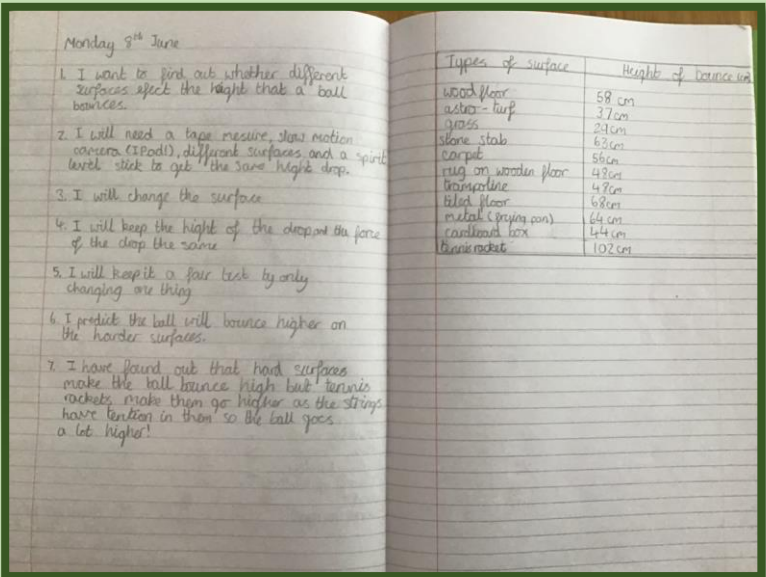 Monday 8th June
1. I want to find out whether different
surfaces efect the hight that a ball
bounces.
2. I will need a tape mesure, slow motion
camera (IPod!), different surfaces and a spirit
level stick to get the same hight drop.
3. I will change the surface
4. I will keep the hight of the drop and the force
of the drop the same
5. I will keep it a fair test by only
changing one thing
6. I predict the ball will bounce higher on
the harder surfaces.
7. I have found out that hard surfaces
make the ball bounce high but tennis
rackets make them go higher as the strings
have tention in them so the ball goes
a lot higher!
Types of surface Height of bounce
wood floor 58 cm
astro-turf 37cm
grass 29cm
stone slab 63cm
carpet 56cm
rug on wooden floor 48cm
trampoline 48cm
tiled floor 68cm
metal (frying pan) 64cm
cardboard box 44cm
tennis racket 102cm